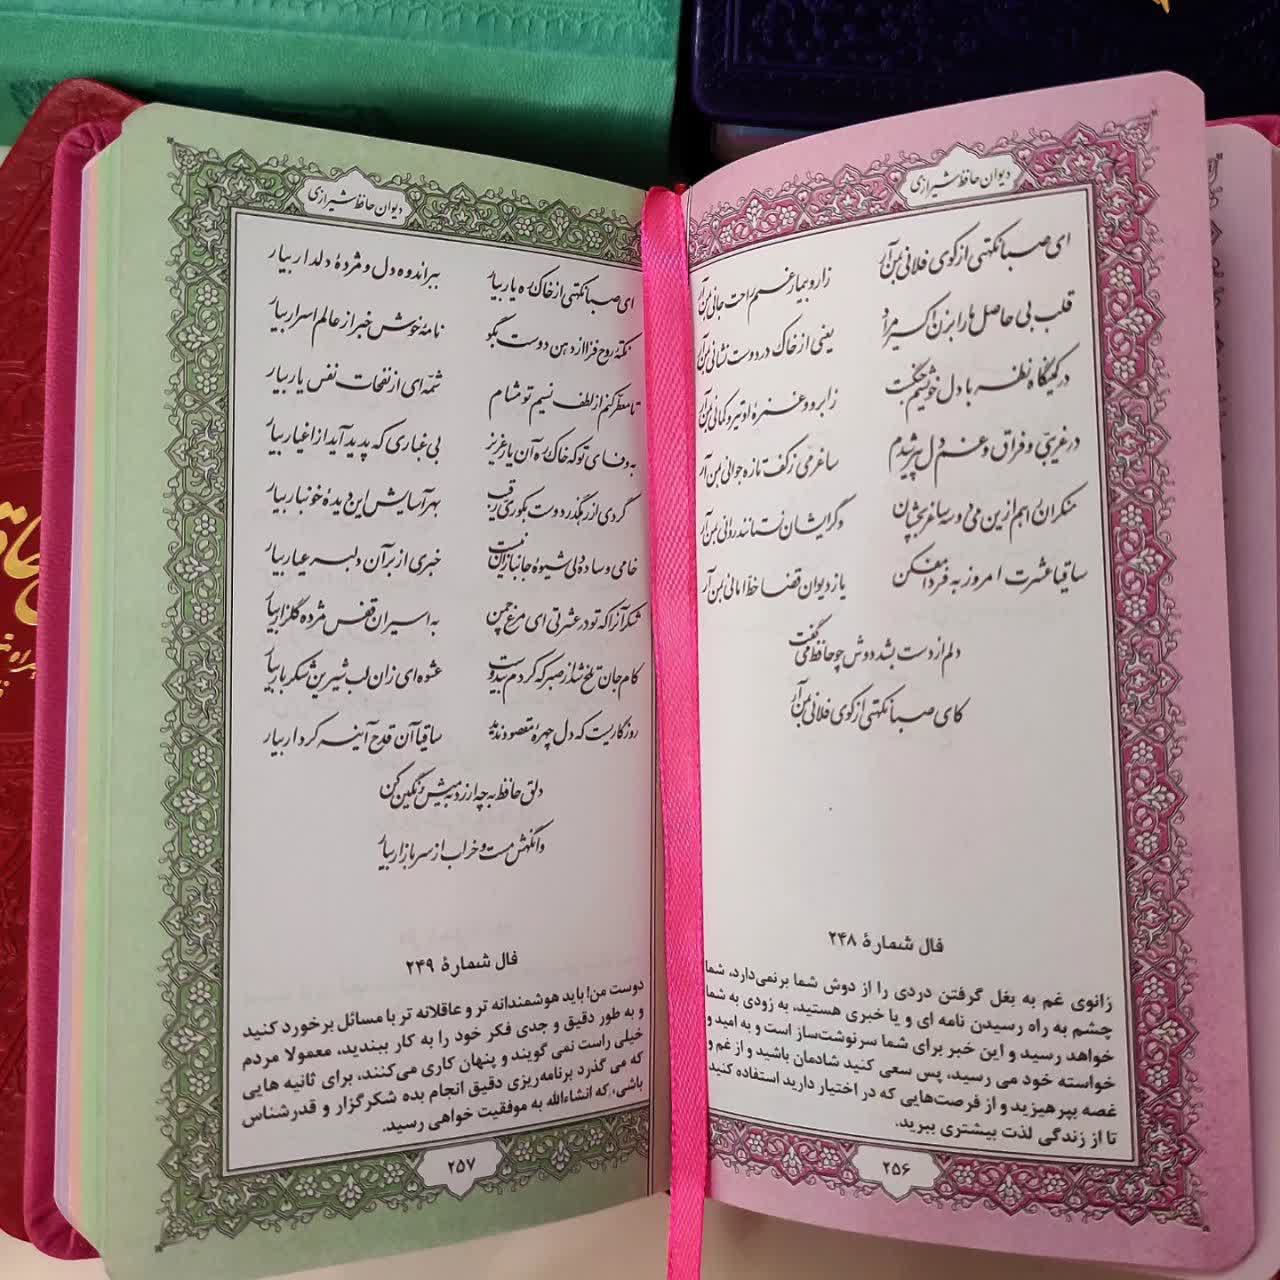 دیوان حافظ شیرازی
ای صبا نکهتی از کوی فلانی بمن آر
زار و بیمار غمم راحت جانی بمن آر
قلب بی حاصل ما را بزن اکسیر مراد
یعنی از خاک در دوست نشانی بمن آر
در کمینگاه نظر با دل خویشم جنگست
ز ابرو و غمزهٔ او تیر و کمانی بمن آر
در غریبی و فراق و غم دل پیر شدم
ساغر می ز کف تازه جوانی بمن آر
منکران را هم ازین می دو سه ساغر بچشان
وگر ایشان نستانند روانی بمن آر
ساقیا عشرت امروز به فردا مفکن
یا ز دیوان قضا خط امانی بمن آر
دلم از دست بشد دوش چو حافظ می گفت
کای صبا نکهتی از کوی فلانی بمن آر
فال شمارهٔ ۲۴۸
زانوی غم به بغل گرفتن دردی را از دوش شما برنمی‌دارد، شما
چشم به راه رسیدن نامه ای و یا خبری هستید، به زودی به شما
خواهد رسید و این خبر برای شما سرنوشت‌ساز است و به امید و
خواسته خود می رسید، پس سعی کنید شادمان باشید و از غم و
غصه بپرهیزید و از فرصت‌هایی که در اختیار دارید استفاده کنید
تا از زندگی لذت بیشتری ببرید.
۲۵۶
دیوان حافظ شیرازی
ای صبا نکهتی از خاک ره یار بیار
ببر اندوه دل و مژدهٔ دلدار بیار
نکتهٔ روح فزا از دهن دوست بگو
نامهٔ خوش خبر از عالم اسرار بیار
تا معطر کنم از لطف نسیم تو مشام
شمّه‌ای از نفحات نفس یار بیار
به وفای تو که خاک ره آن یار عزیز
بی غباری که پدید آید از اغیار بیار
گردی از رهگذر دوست بکوری رقیب
بهر آسایش این دیدهٔ خونبار بیار
خامی و ساده دلی شیوهٔ جانبازان نیست
خبری از بر آن دلبر عیار بیار
شکر آنرا که تو در عشرتی ای مرغ چمن
به اسیران قفس مژده گلزار بیار
کام جان تلخ شد از صبر که کردم بیدوست
عشوه‌ای زان لب شیرین شکربار بیار
روزگاریست که دل چهرهٔ مقصود ندید
ساقیا آن قدح آینه کردار بیار
دلق حافظ به چه ارزد به میش رنگین کن
وانگهش مست و خراب از سر بازار بیار
فال شمارهٔ ۲۴۹
دوست من! باید هوشمندانه تر و عاقلانه تر با مسائل برخورد کنید
و به طور دقیق و جدی فکر خود را به کار ببندید، معمولا مردم
خیلی راست نمی گویند و پنهان کاری می‌کنند، برای ثانیه هایی
که می گذرد برنامه‌ریزی دقیق انجام بده شکرگزار و قدرشناس
باشی، که انشاءالله به موفقیت خواهی رسید.
۲۵۷